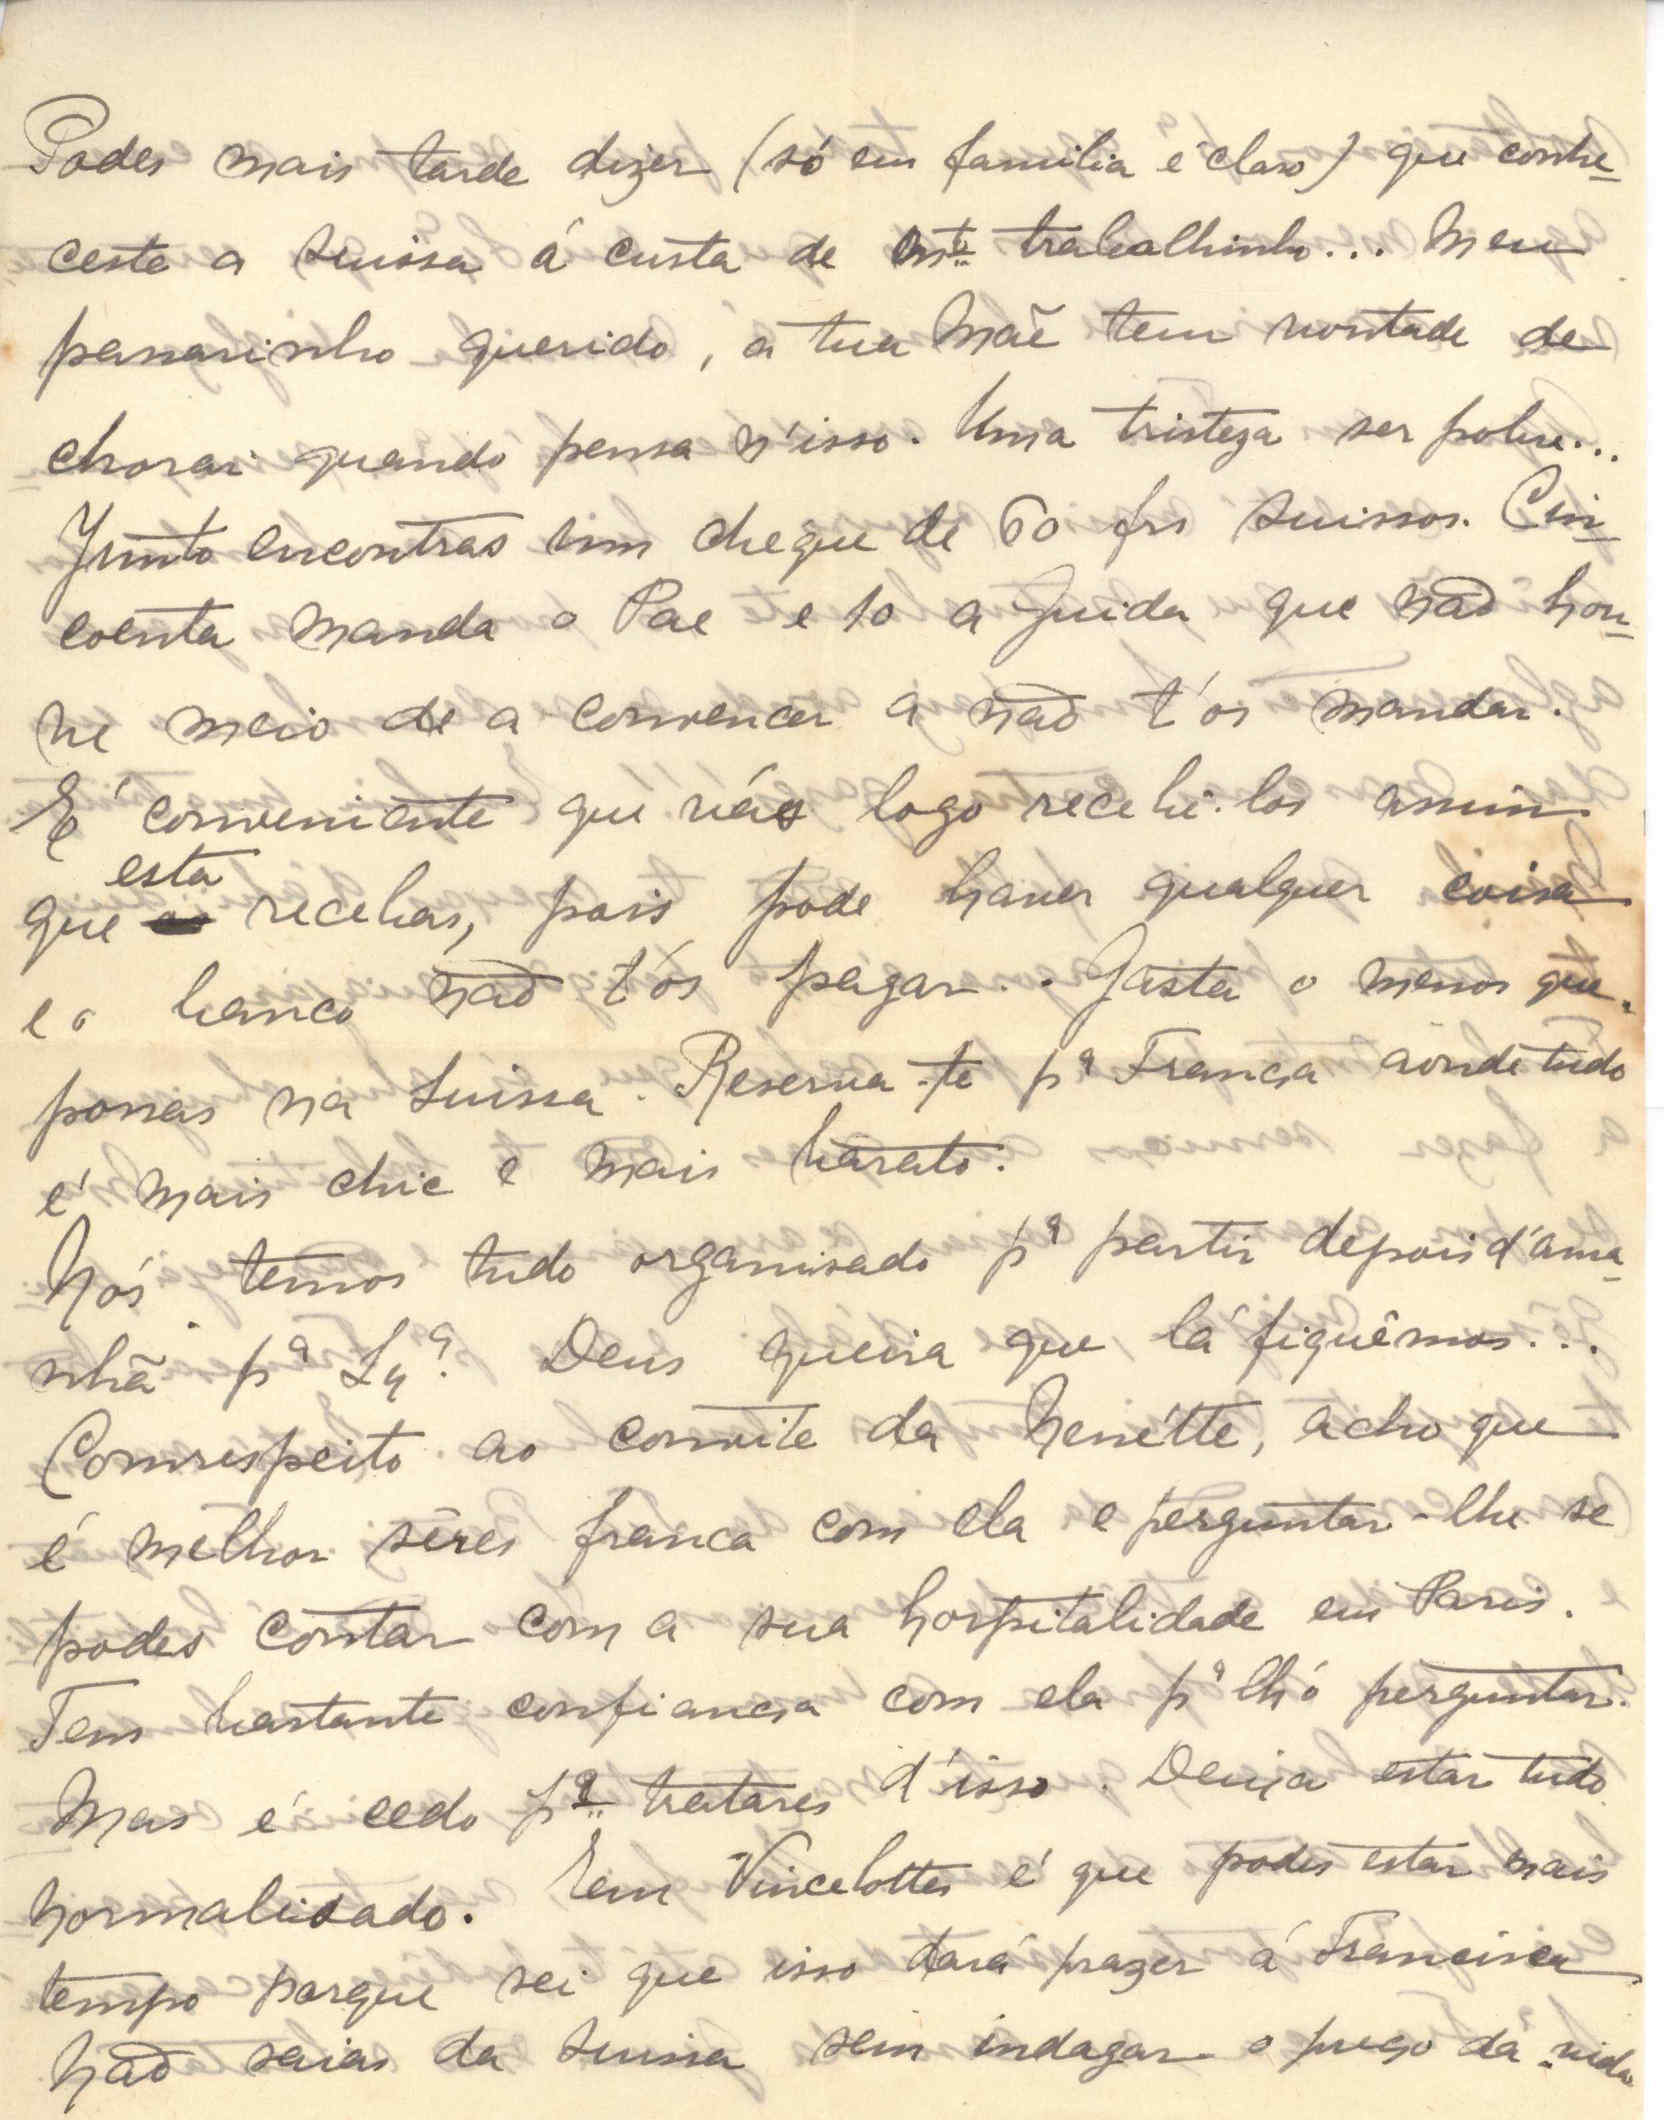 Podes mais tarde dizer (só em familia é claro) que conhe-
ceste a Suissa á custa de mtº trabalhinho... Meu
passarinho querido, a tua Mãe tem vontade de
chorar quando pensa n'isso. Uma tristeza ser pobre...
Junto encontras um cheque de 60 frs suissos. Cin-
coenta manda o Pae e 10 a Guida que não hou-
ve meio de a convencer a não t'os mandar.
E' conveniente que vás logo recebê-los assim
que esta recebas, pois pode haver qualquer coisa
e o banco não t'os pagar.. Gasta o menos que
possas na Suissa. Reserva-te pª França aonde tudo
é mais chic e mais barato.
Nós temos tudo organisado pª partir depois d'ama-
nhã pª Lxª. Deus queira que lá fiquêmos...
Com respeito ao convite da Henétte, acho que
é melhor sêres franca com ela e perguntar-lhe se
podes contar com a sua hospitalidade em Paris.
Tens bastante confiança com ela pª lh'o perguntar.
Mas é cedo pª tratares d'isso. Deixa estar tudo
normalisado. Em Vincelottes é que podes estar mais
tempo porque sei que isso dará prazer á Francisca
Não saias da Suissa sem indagar o preço da vida